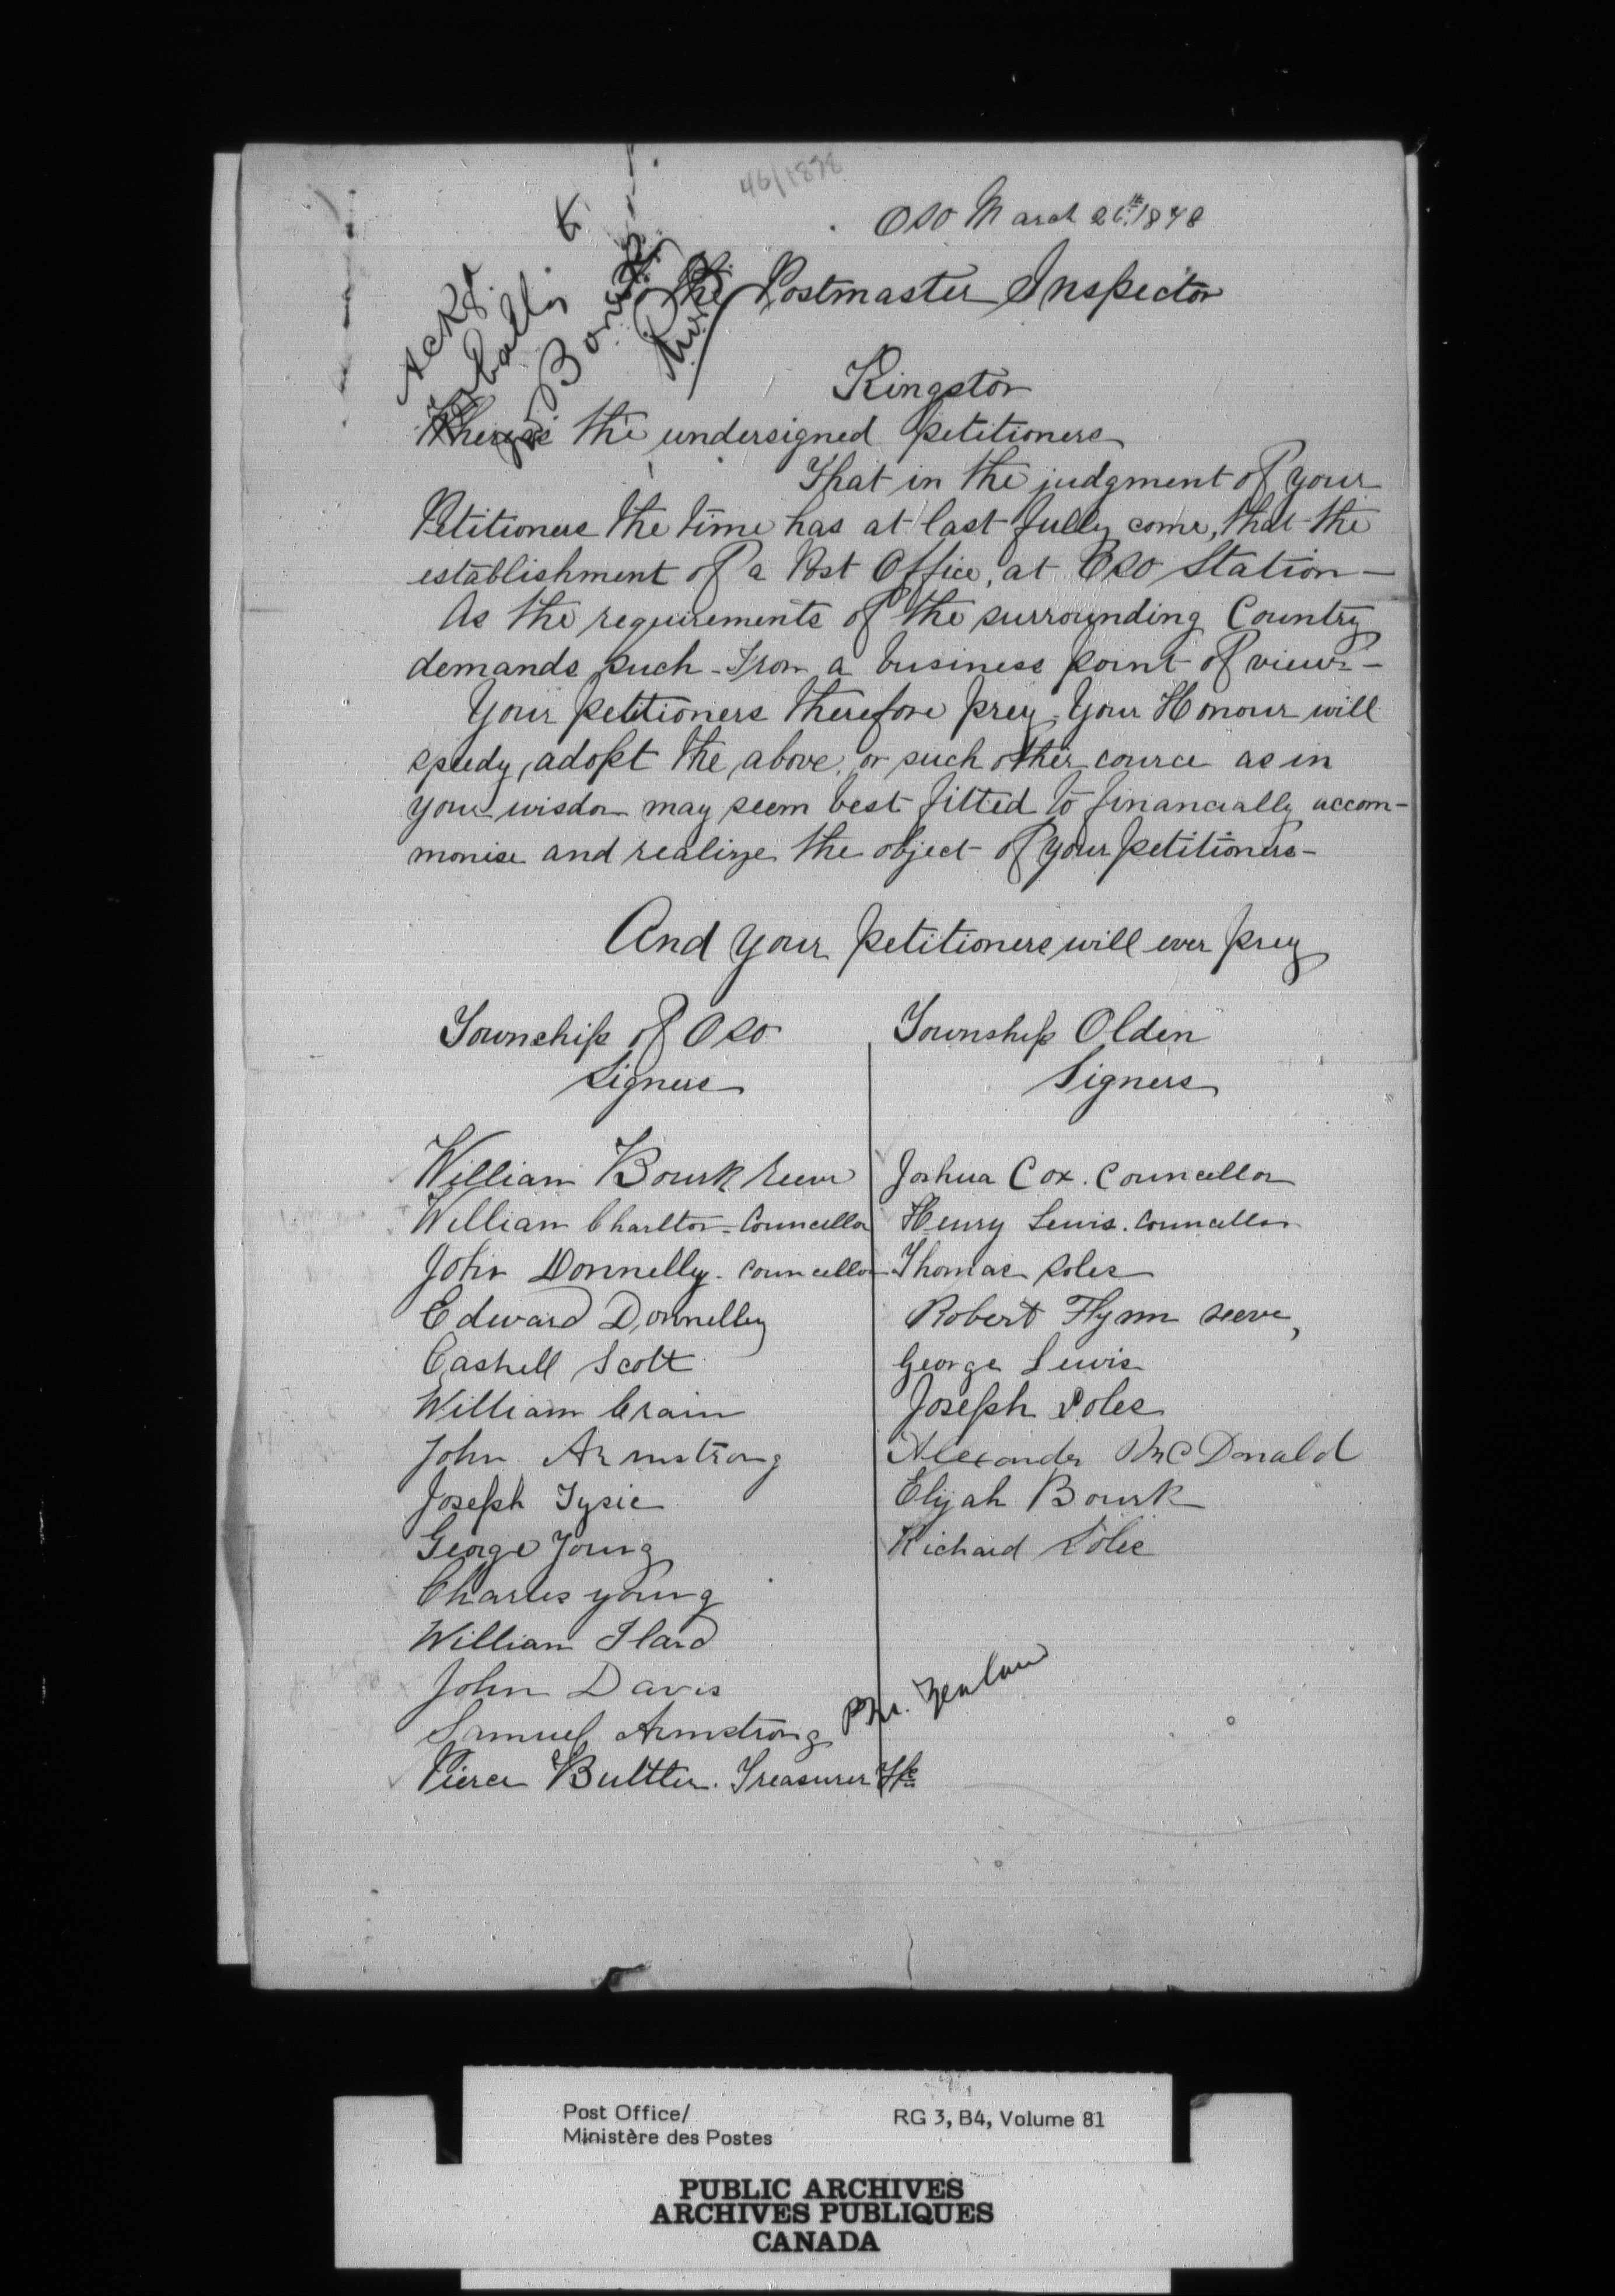 46/1878
Oso March 26th 1878
To the Postmaster Inspector
Kingston
Ackd.
verbally to
Wm Bourk
Whereas the undersigned petitioners
That in the judgment of your
Petitioners the time has at last fully come, that the
establishment of a Post Office, at Oso Station -
As the requirements of the surrounding Country
demands such - From a business point of view -
Your petitioners therefore prey Your Honour will
speedy, adopt the above, or such other cource as in
your wisdom may seem best fitted to financially accom-
monise and realize the object of your petitioners -
And your petitioners will ever prey
Township of Oso
Signers
William Bourk reeve
William Charlton - Councellor
John Donnelly - Councellor
Edward Donnelley
Cashell Scott
William Crain
John Armstrong
Joseph Tysic
George Young
Charles young
William Hard
John Davis
Samuel Armstrong
Pierce Bultter. Treasurer
Township Olden
Signers
Joshua Cox. Councellor
Henry Lewis. Councellor
Thomas Soles
Robert Flynn reeve,
George Lewis
Joseph Soles
Alexander McDonald
Elijah Bourk
Richard Soles
Post Office/
Ministère des Postes
RG 3, B4, Volume 81
PUBLIC ARCHIVES
ARCHIVES PUBLIQUES
CANADA